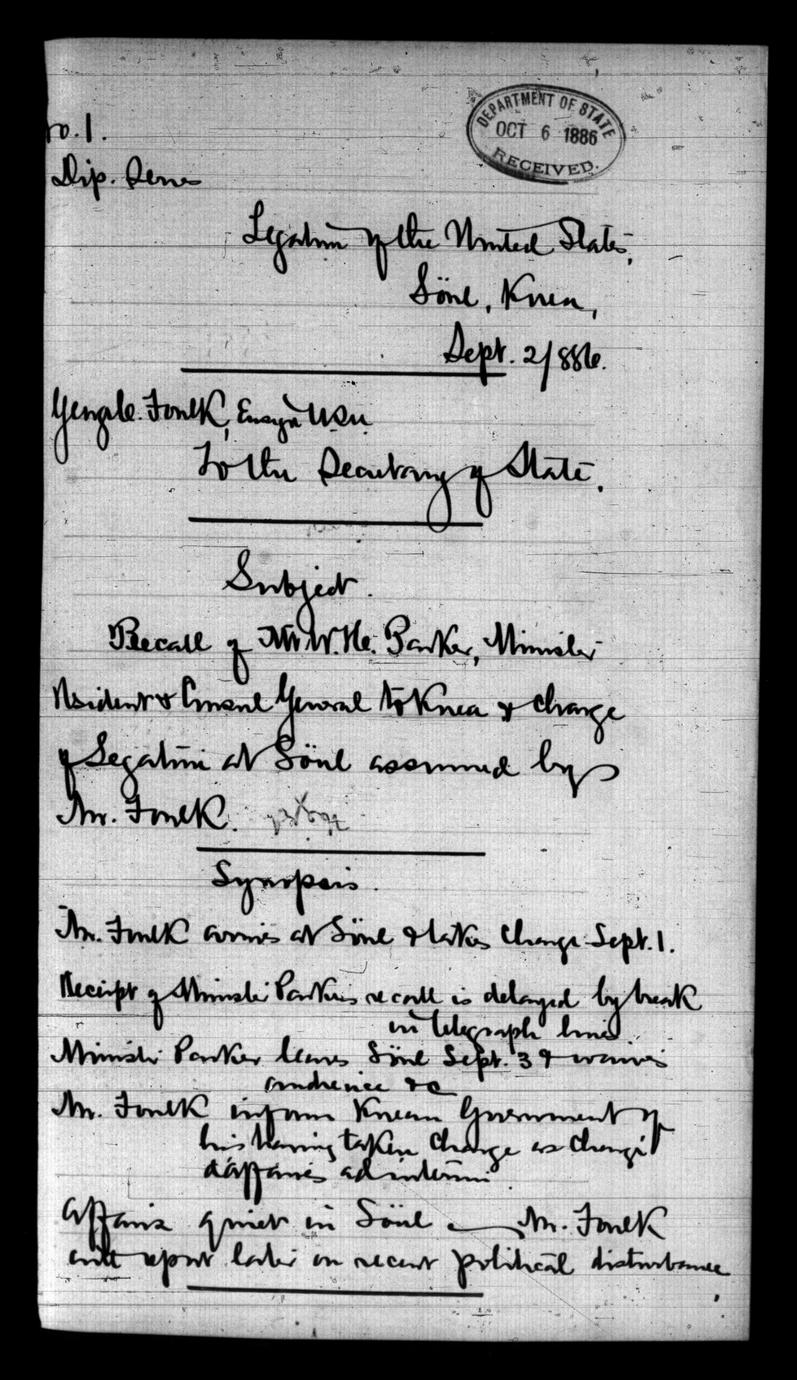 No. 1.
DEPARTMENT OF STATE
OCT 6 1886
RECEIVED.
Dip. Series
Legation of the United States,
Söul, Korea,
Sept. 2/886.
George C. Foulk, Ensign USN
To the Secretary of State.
Subject.
Recall of Mr W. H. Parker, Minister
Resident & Consul General to Korea & charge
of Legation at Söul assumed by
Mr. Foulk.
Synopsis.
Mr. Foulk arrives at Söul & takes charge Sept. 1.
Receipt of Minister Parker's recall is delayed by break
in telegraph line.
Minister Parker leaves Söul Sept. 3 & waives
audience &c
Mr. Foulk informs Korean Government of
his having taken charge as chargé
d'affaires ad interim
Affairs quiet in Söul — Mr. Foulk
will report later on recent political disturbance